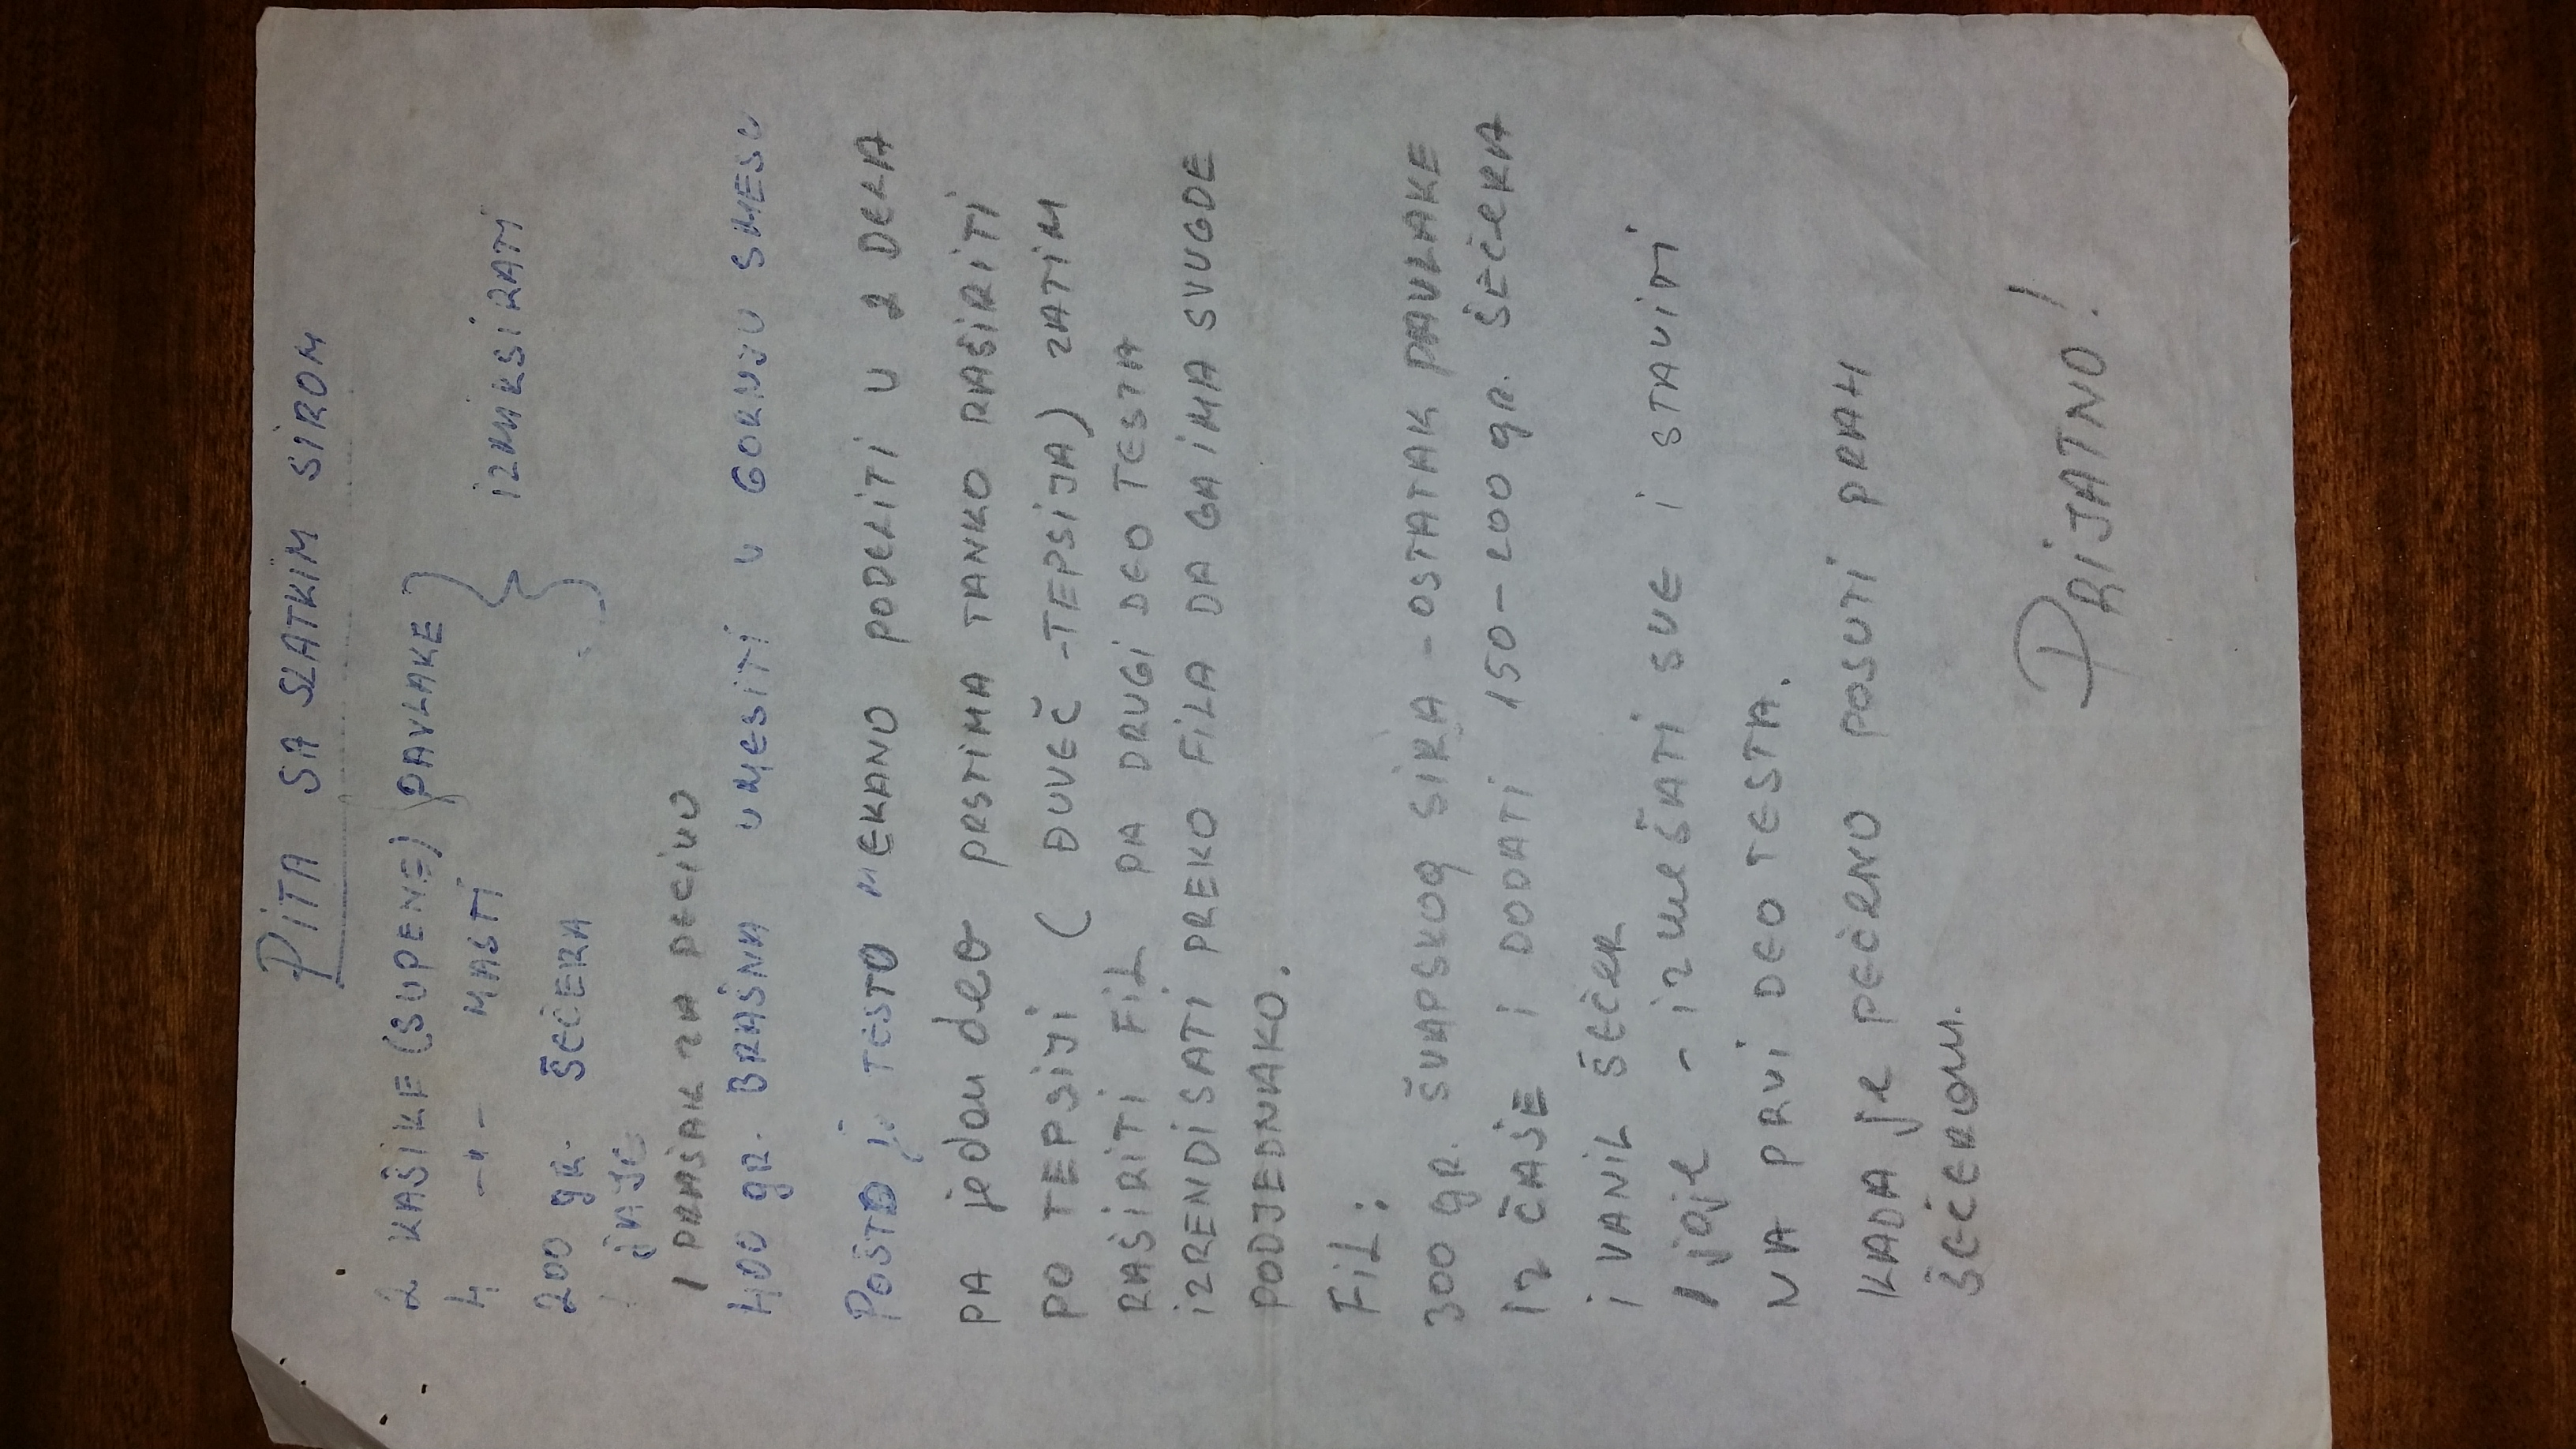 PITA SA SLATKIM SIROM
2 KAŠIKE (SUPENE) PAVLAKE
4 -"- MASTI } IZMIKSIRATI
200 gr. ŠEČERA
1 JAJE
1 PRAŠAK ZA PECIVO
400 gr. BRAŠNA UMESITI U GORNJU SMESU
POŠTO je TESTO MEKANO PODELITI U 2 DELA
PA jedan deo PRSTIMA TANKO RAŠIRITI
PO TEPSIJI ( ĐUVEČ -TEPSIJA) ZATIM
RAŠIRITI FIL PA DRUGI DEO TESTA
IZRENDISATI PREKO FILA DA GA IMA SVUGDE
PODJEDNAKO.
FIL:
300 gr. ŠVAPSKOG SIRA - OSTATAK PAVLAKE
IZ ČAŠE i DODATI 150-200 gr. ŠEČERA
i VANIL ŠEČER
1 jaje - IZMEŠATI SVE i STAVITI
NA PRVI DEO TESTA.
KADA je PEČENO POSUTI PRAH
ŠEČEROM.
PRIJATNO!